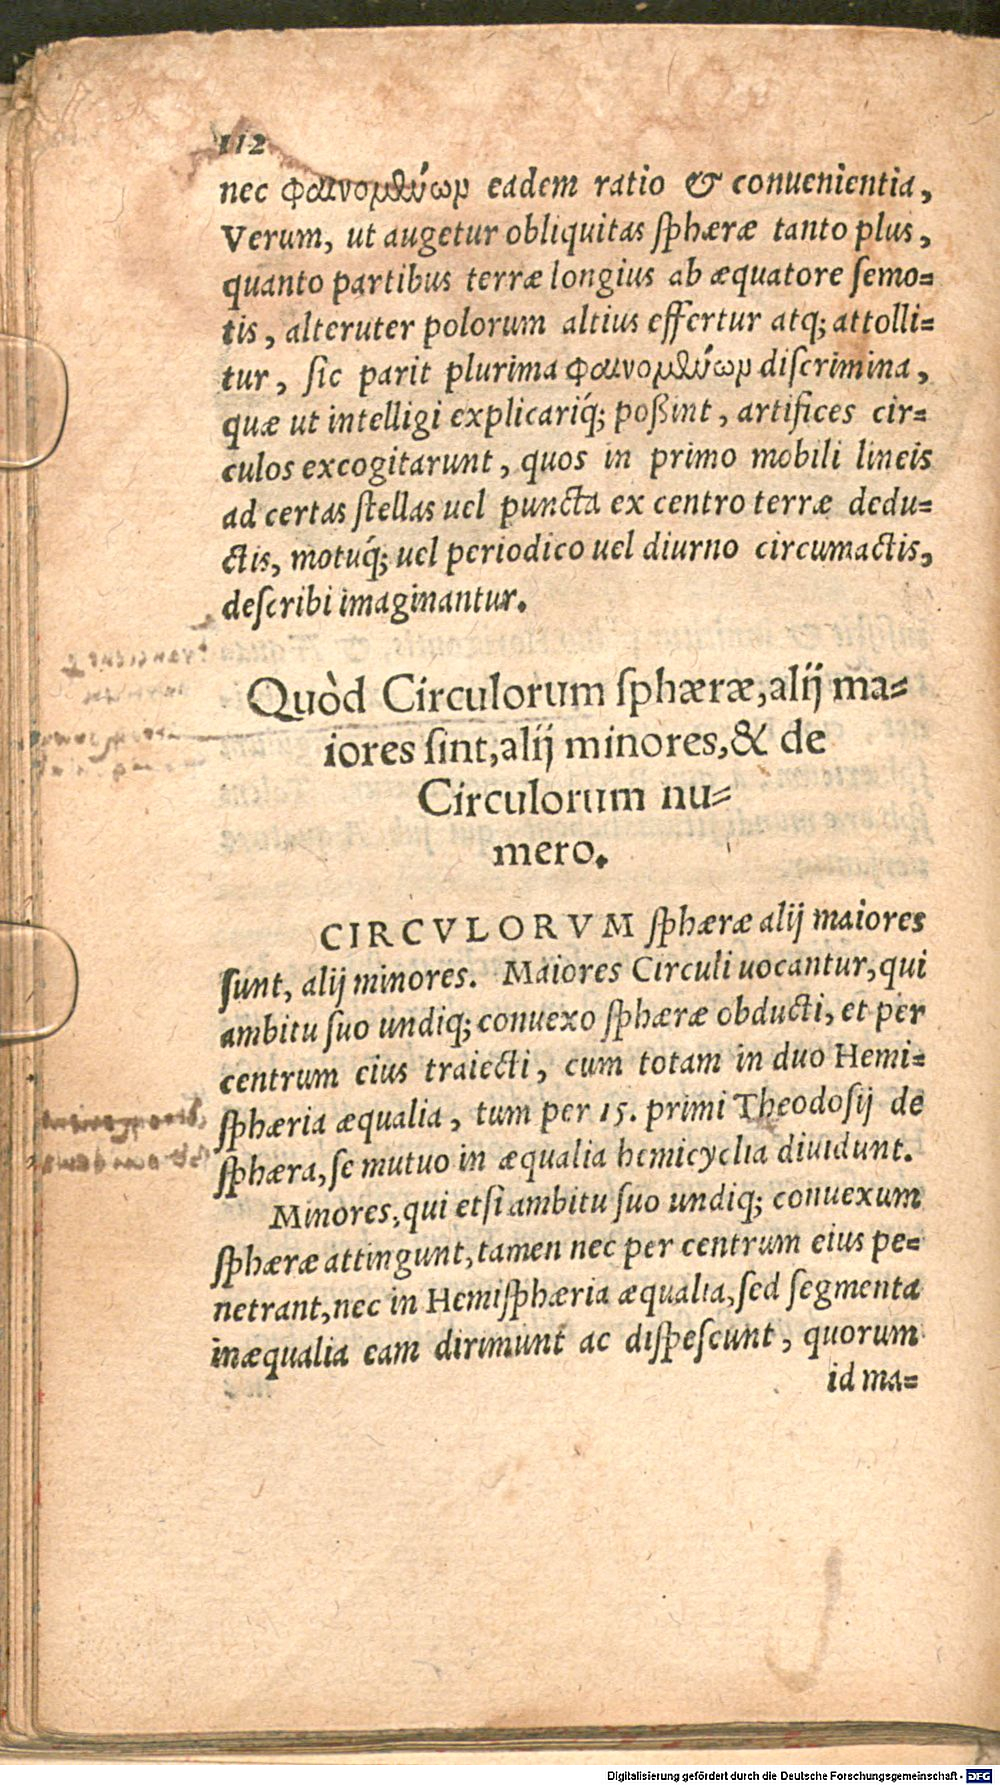 112
nec φαινομένων eadem ratio & conuenientia,
Verum, ut augetur obliquitas sphæræ tanto plus,
quanto partibus terræ longius ab æquatore semo=
tis, alteruter polorum altius effertur atq; attolli=
tur, sic parit plurima φαινομένων discrimina,
quæ ut intelligi explicariq́; poßint, artifices cir=
culos excogitarunt, quos in primo mobili lineis
ad certas stellas uel puncta ex centro terræ dedu=
ctis, motuq́; uel periodico uel diurno circumactis,
describi imaginantur.
Quòd Circulorum sphæræ, alij ma=
iores sint, alij minores, & de
Circulorum nu=
mero.
CIRCVLORVM sphæræ alij maiores
sunt, alij minores. Maiores Circuli uocantur, qui
ambitu suo undiq; conuexo sphæræ obducti, et per
centrum eius traiecti, cum totam in duo Hemi=
sphæria æqualia, tum per 15. primi Theodosij de
sphæra, se mutuo in æqualia hemicyclia diuidunt.
Minores, qui etsi ambitu suo undiq; conuexum
sphæræ attingunt, tamen nec per centrum eius pe=
netrant, nec in Hemisphæria æqualia, sed segmenta
inæqualia eam dirimunt ac dispescunt, quorum
id ma=
Digitalisierung gefördert durch die Deutsche Forschungsgemeinschaft - DFG